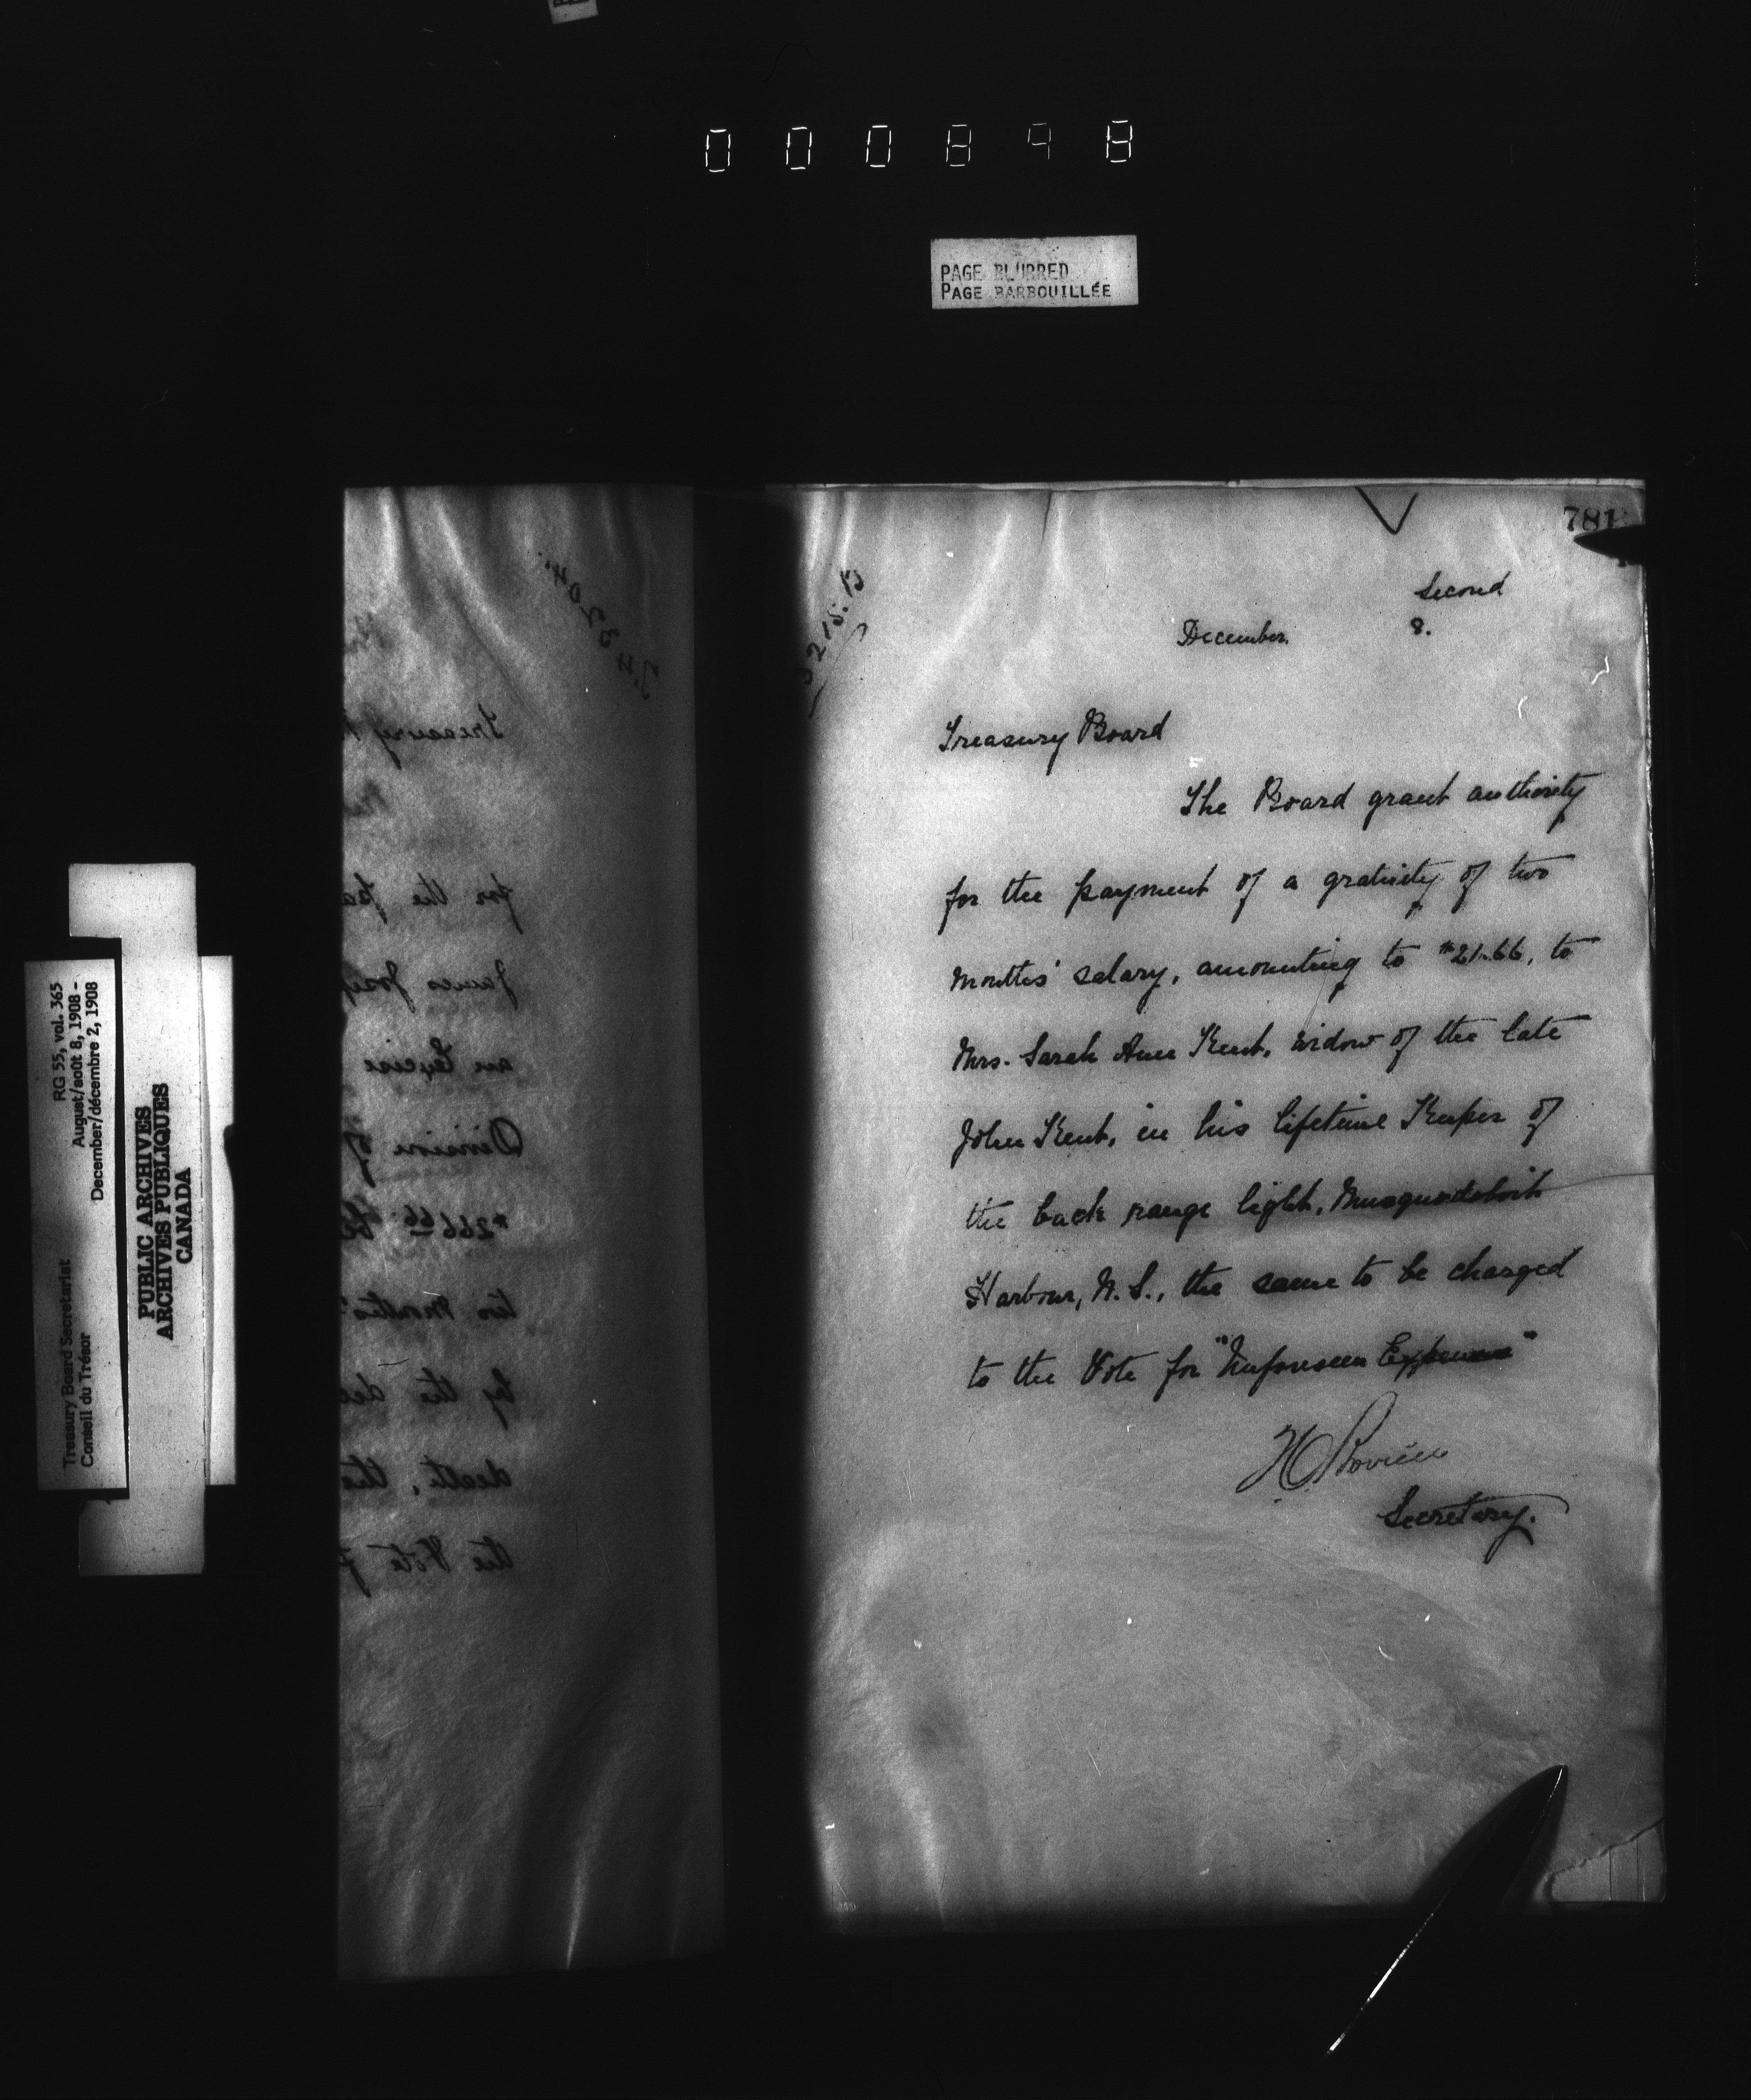 000898
PAGE BLURRED
PAGE BARBOUILLÉE
RG 55, vol. 365
August/août 8, 1908 -
December/décembre 2, 1908
Treasury Board Secretariat
Conseil du Trésor
PUBLIC ARCHIVES
ARCHIVES PUBLIQUES
CANADA
Treasury
for the
James
an
Division of
two months'
by the
death, the
the Vote
781
Second
December. 8.
Treasury Board
The Board grant authority
for the payment of a gratuity of two
months' salary, amounting to $21.66, to
Mrs. Sarah Ann Kent, widow of the late
John Kent, in his lifetime Keeper of
the back range light, Musquodoboit
Harbour, N.S., the same to be charged
to the Vote for "Unforeseen Expenses"
Secretary.